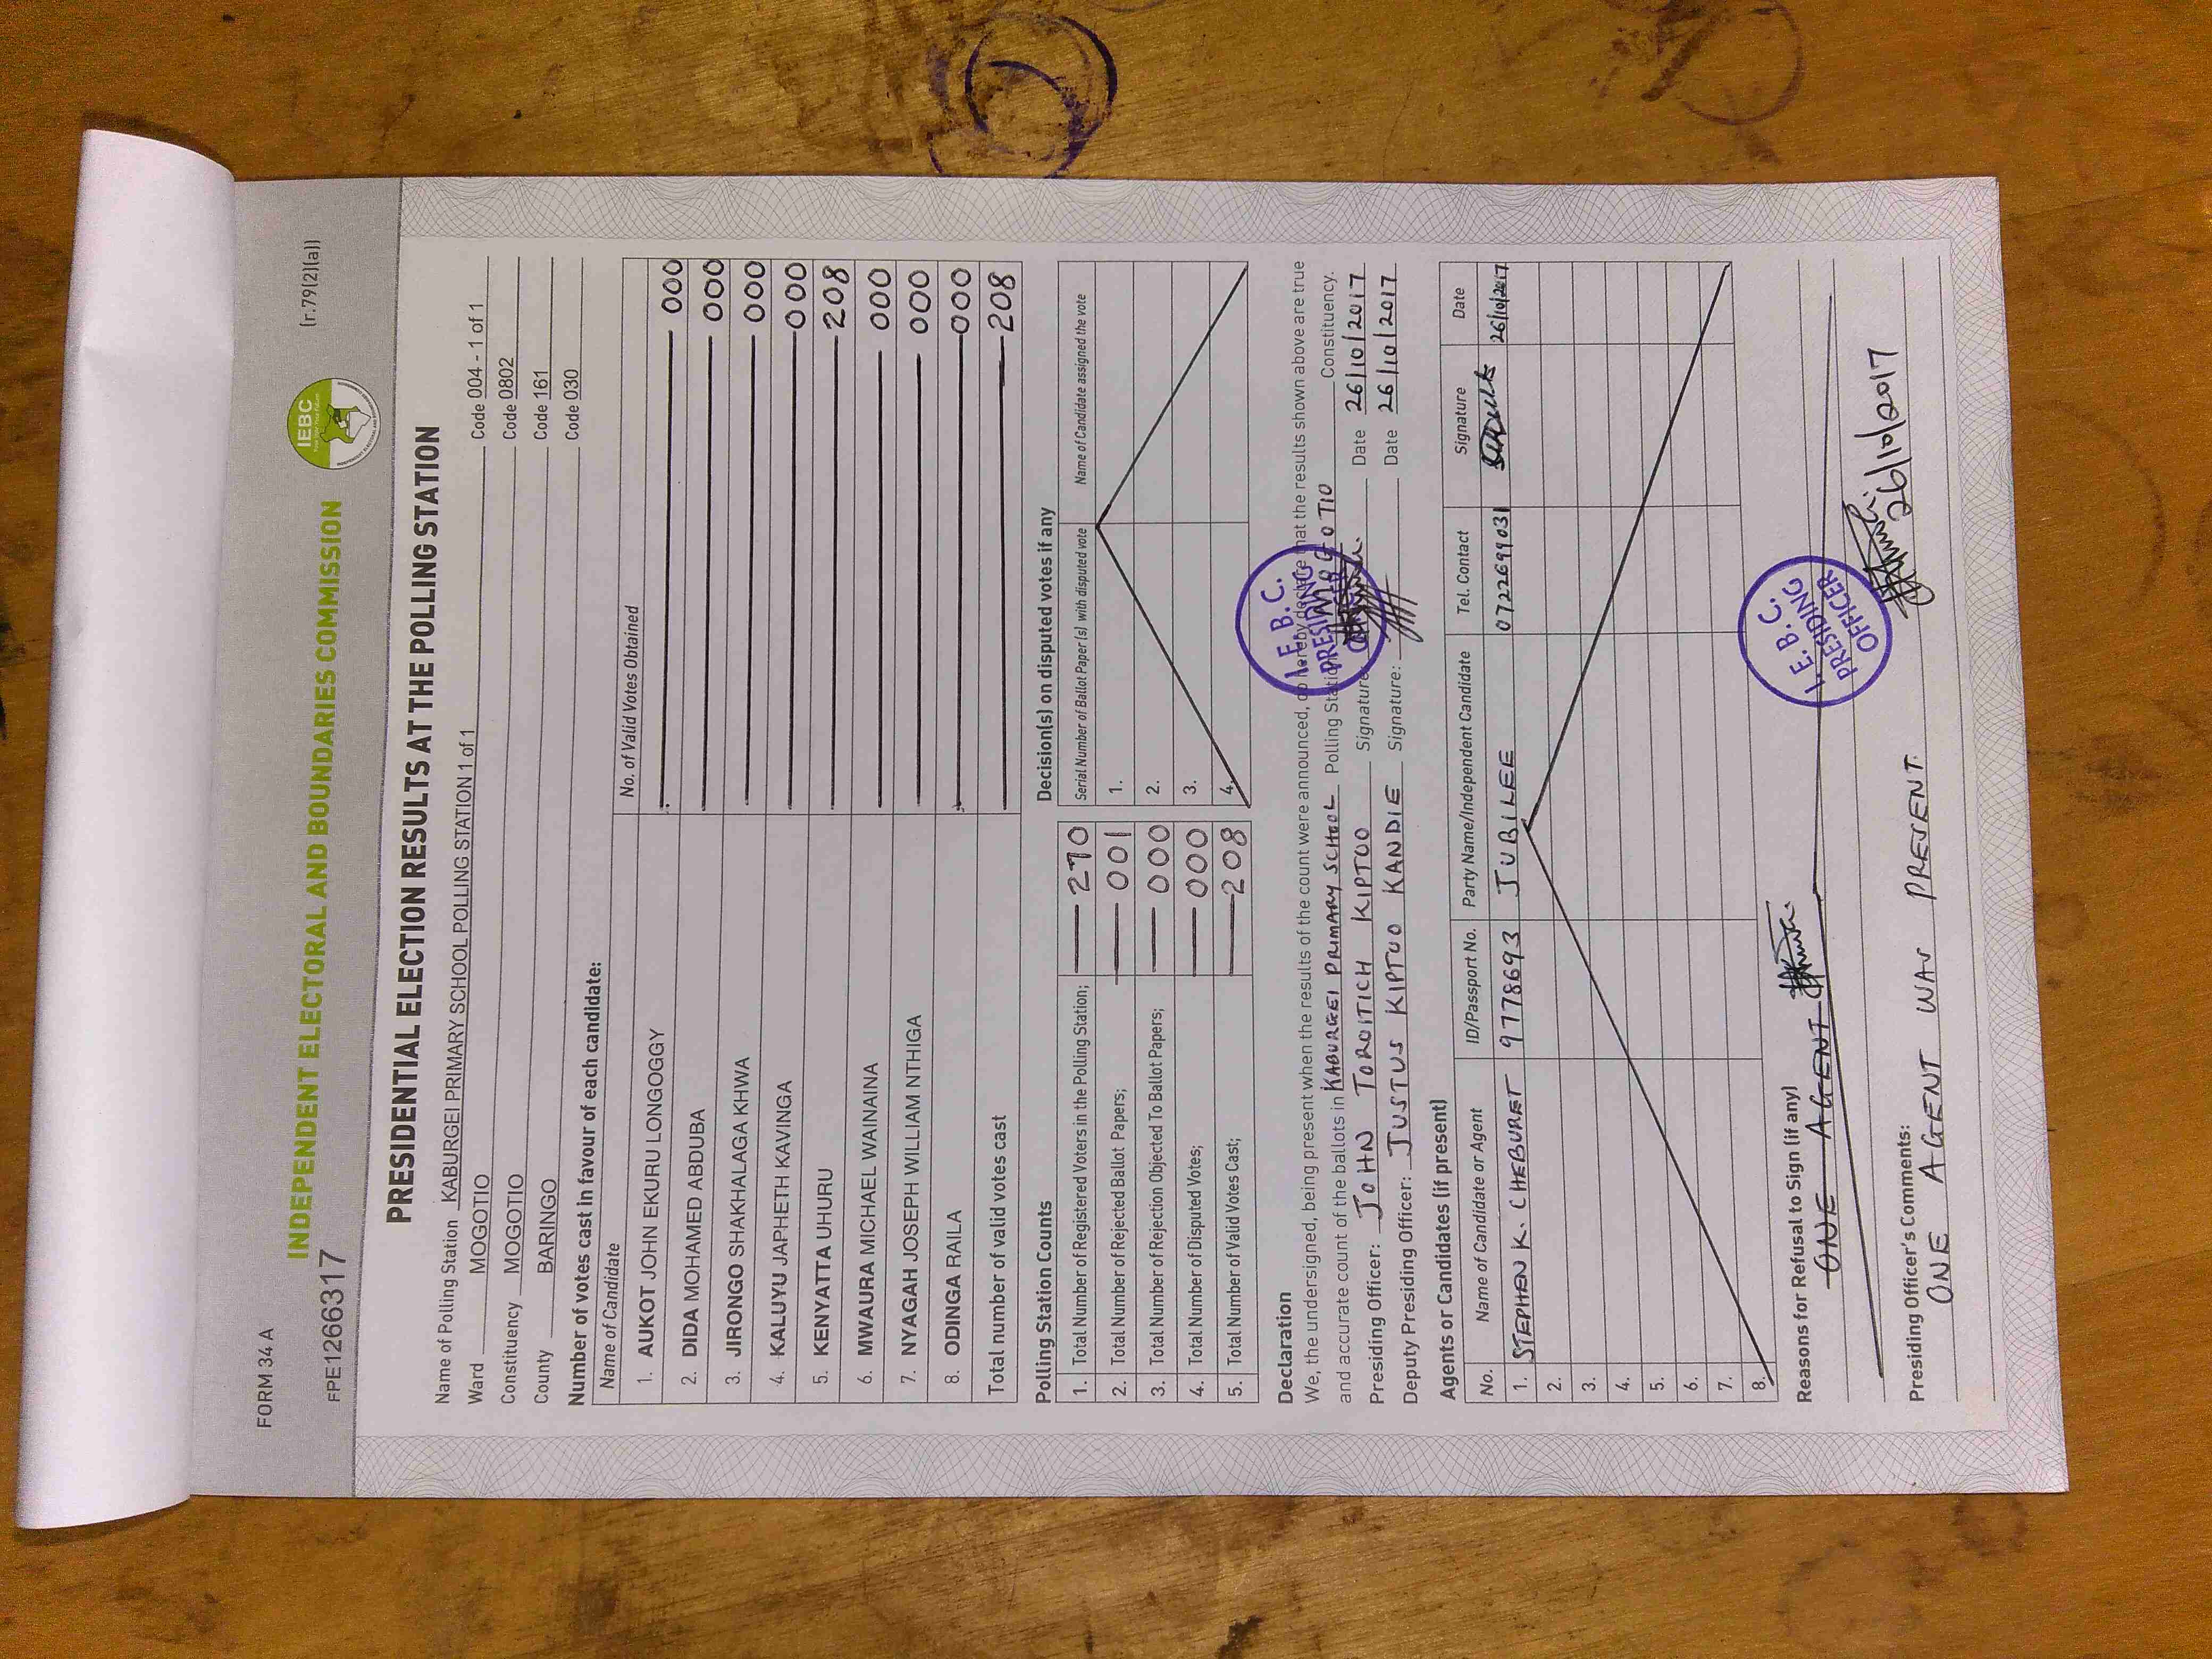 FORM 34 A
[r.79(2)(a)]
INDEPENDENT ELECTORAL AND BOUNDARIES COMMISSION
IEBC
FPE1266317
PRESIDENTIAL ELECTION RESULTS AT THE POLLING STATION
Name of Polling Station KABURGEI PRIMARY SCHOOL POLLING STATION 1 of 1 Code 004 - 1 of 1
Ward MOGOTIO Code 0802
Constituency MOGOTIO Code 161
County BARINGO Code 030
Number of votes cast in favour of each candidate:
Name of Candidate No. of Valid Votes Obtained
1. AUKOT JOHN EKURU LONGOGGY 000
2. DIDA MOHAMED ABDUBA 000
3. JIRONGO SHAKHALAGA KHWA 000
4. KALUYU JAPHETH KAVINGA 000
5. KENYATTA UHURU 208
6. MWAURA MICHAEL WAINAINA 000
7. NYAGAH JOSEPH WILLIAM NTHIGA 000
8. ODINGA RAILA 000
Total number of valid votes cast 208
Polling Station Counts
1. Total Number of Registered Voters in the Polling Station; 270
2. Total Number of Rejected Ballot Papers; 001
3. Total Number of Rejection Objected To Ballot Papers; 000
4. Total Number of Disputed Votes; 000
5. Total Number of Valid Votes Cast; 208
Decision(s) on disputed votes if any
Serial Number of Ballot Paper(s) with disputed vote Name of Candidate assigned the vote
1.
2.
3.
4.
Declaration
We, the undersigned, being present when the results of the count were announced, do hereby declare that the results shown above are true
and accurate count of the ballots in KABURGEI PRIMARY SCHOOL Polling Station MOGOTIO Constituency.
Presiding Officer: JOHN TOROITICH KIPTOO Signature: Date 26/10/2017
Deputy Presiding Officer: JUSTUS KIPTUO KANDIE Signature: Date 26/10/2017
I.E.B.C. PRESIDING
Agents or Candidates (if present)
No. Name of Candidate or Agent ID/Passport No. Party Name/Independent Candidate Tel. Contact Signature Date
1. STEPHEN K. CHEBURET 97778693 JUBILEE 0722699031 26/10/2017
2.
3.
4.
5.
6.
7.
8.
Reasons for Refusal to Sign (if any)
ONE AGENT
I.E.B.C. PRESIDING OFFICER
Presiding Officer's Comments: 26/10/2017
ONE AGENT WAS PRESENT